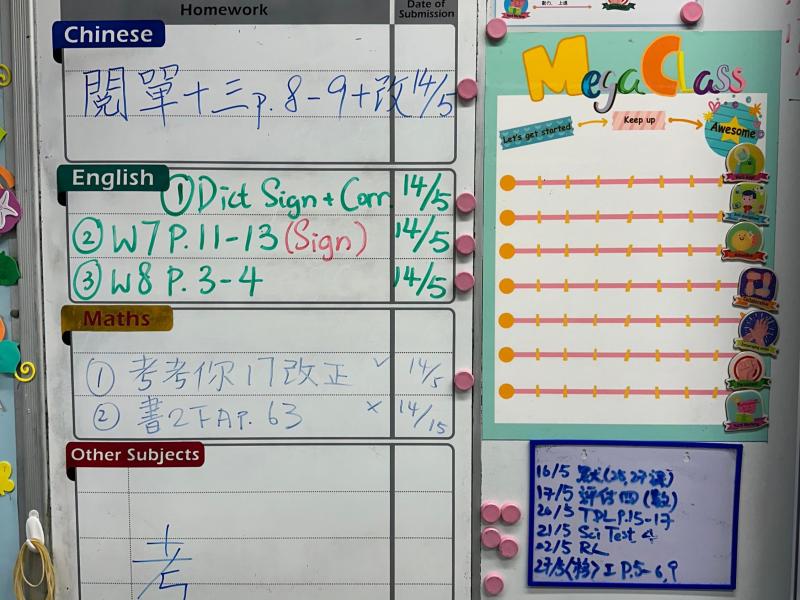 Homework
Date of Submission
Chinese
閱單十三 p. 8-9+改 14/5
English
① Dict Sign + Corr 14/5
② W7 P.11-13 (Sign) 14/5
③ W8 P. 3-4 14/5
Maths
① 考考你17改正 ✓ 14/5
② 書2下A P. 63 × 14/15
Other Subjects
考
Mega Class
Let's get started
Keep up
Awesome
16/5 默(25,27課)
17/5 評估四(數)
20/5 TDLP.15-17
21/5 Sci Test 4
22/5 RL
27/5 I P.5-6,9